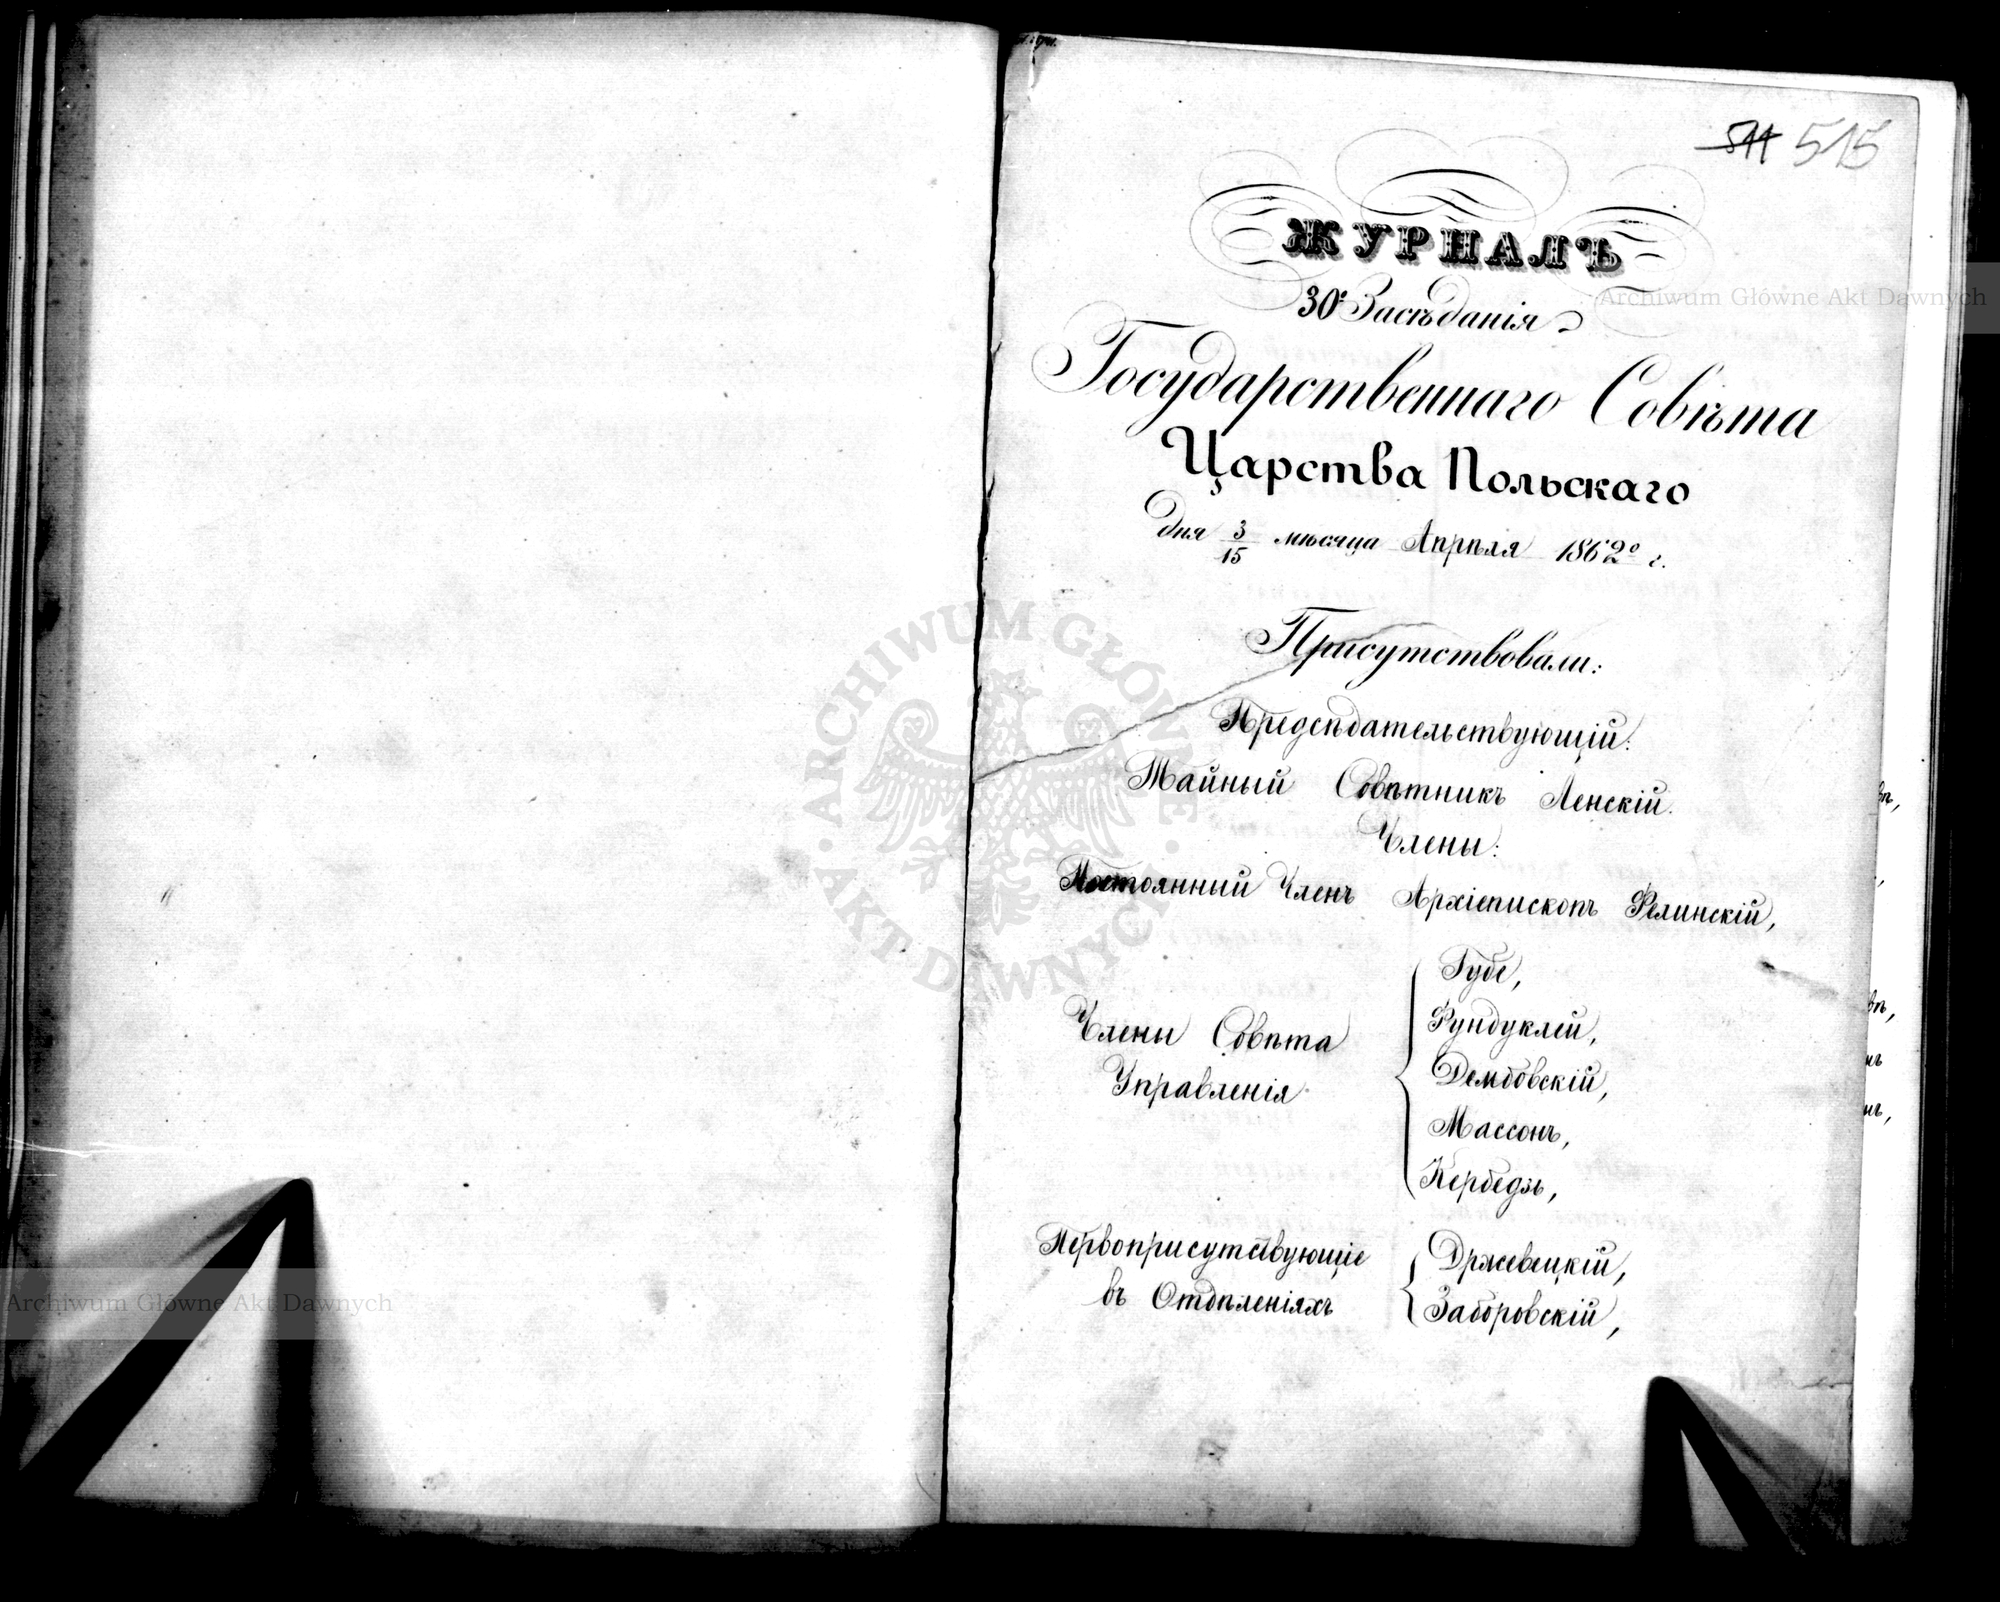 511 515
ЖУРНАЛЪ
30º Засѣданія
Государственнаго Совѣта
Царства Польскаго
дня 3/15 мѣсяца Апрѣля 1862º г.
Присутствовали:
Предсѣдательствующій:
Тайный Совѣтникъ Ленскій.
Члены:
Постоянный Членъ Архіепископъ Фелинскій,
Члены Совѣта
Управленія
Губе,
Фундуклей,
Дембовскій,
Массонъ,
Кербедзъ,
Первоприсутствующіе
въ Отдѣленіяхъ
Држевецкій,
Заборовскій,
Archiwum Główne Akt Dawnych
ARCHIWUM GŁÓWNE AKT DAWNYCH
Archiwum Główne Akt Dawnych